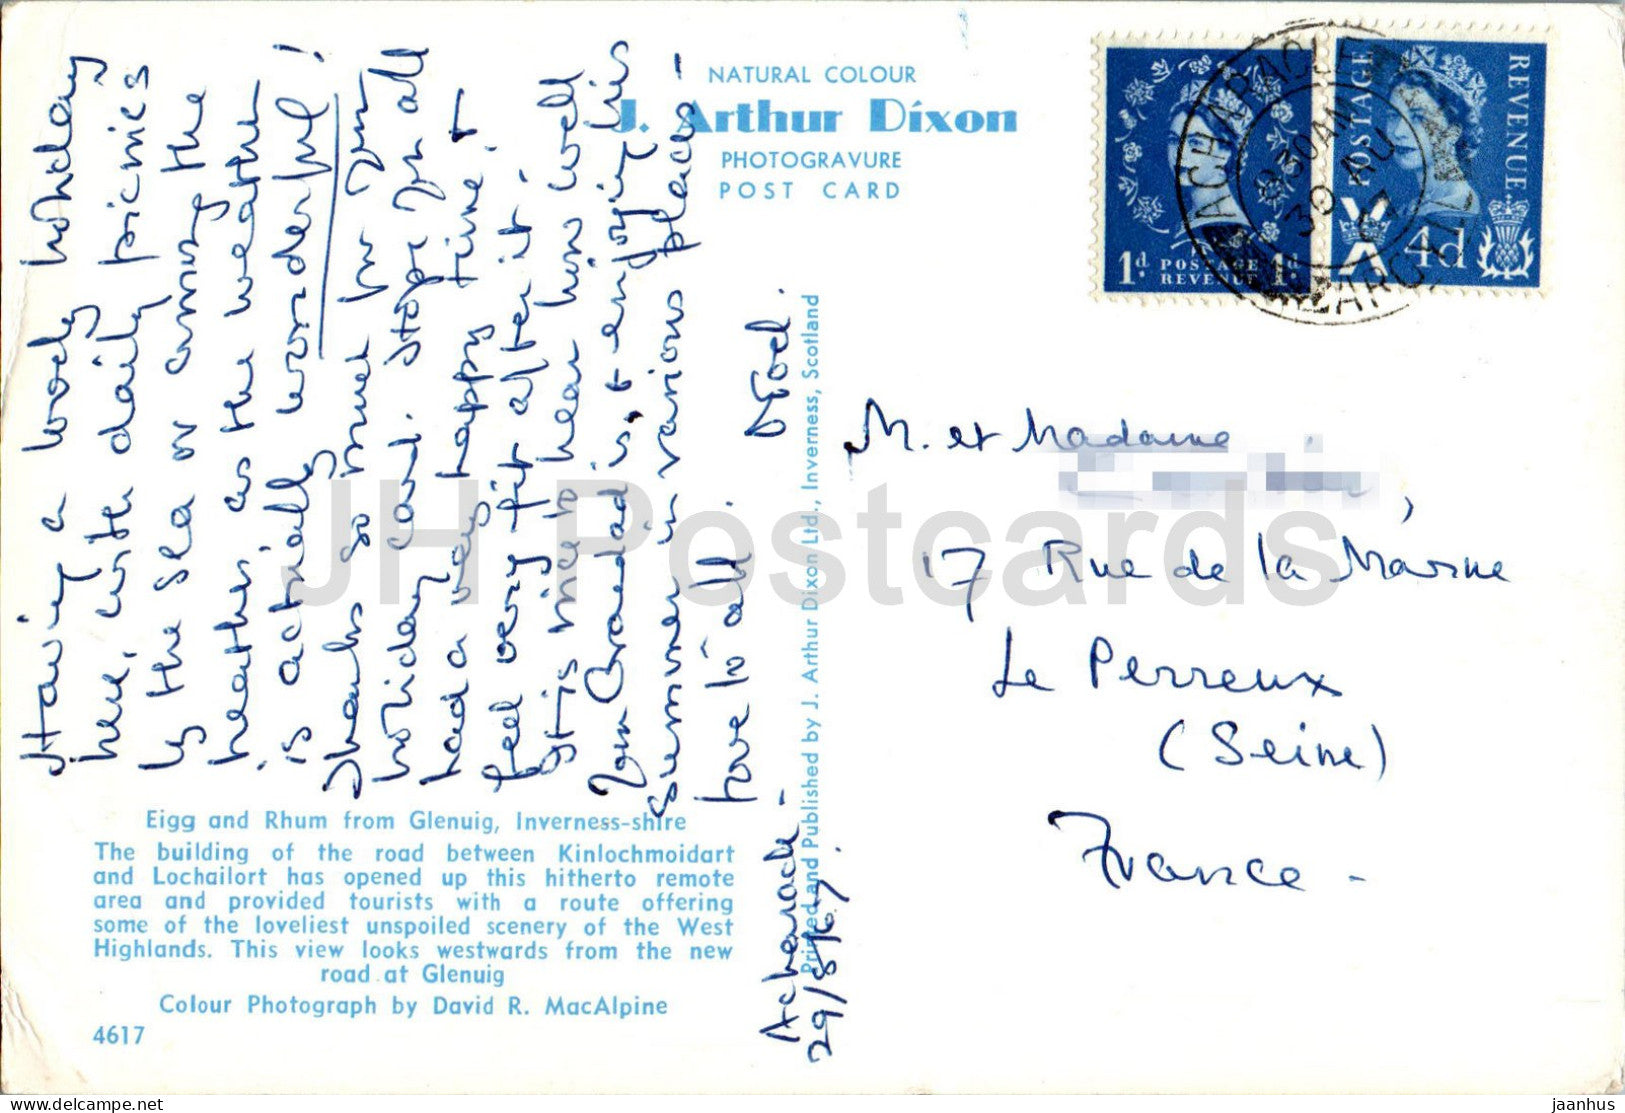 Having a lovely holiday
here, with daily picnics
by the sea or among the
heather, as the weather
is actually wonderful!
Thanks so much for your
holiday card. Hope you all
had a very happy time &
feel very fit after it.
It is nice to hear how well
your Grandad is, & enjoying his
summer in various places -
love to all.
Achararacle -
29/8/67
NATURAL COLOUR
J. Arthur Dixon
PHOTOGRAVURE
POST CARD
Printed and Published by J. Arthur Dixon Ltd., Inverness, Scotland
1d. POSTAGE REVENUE 1d.
POSTAGE
REVENUE
4d
ACHARACLE
8 30AM
30 AU
67
ARGYLL
M. et Madame
17 Rue de la Marne
Le Perreux
(Seine)
France -
Eigg and Rhum from Glenuig, Inverness-shire
The building of the road between Kinlochmoidart
and Lochailort has opened up this hitherto remote
area and provided tourists with a route offering
some of the loveliest unspoiled scenery of the West
Highlands. This view looks westwards from the new
road at Glenuig
Colour Photograph by David R. MacAlpine
4617
JH Postcards
jaanhus @ delcampe.net